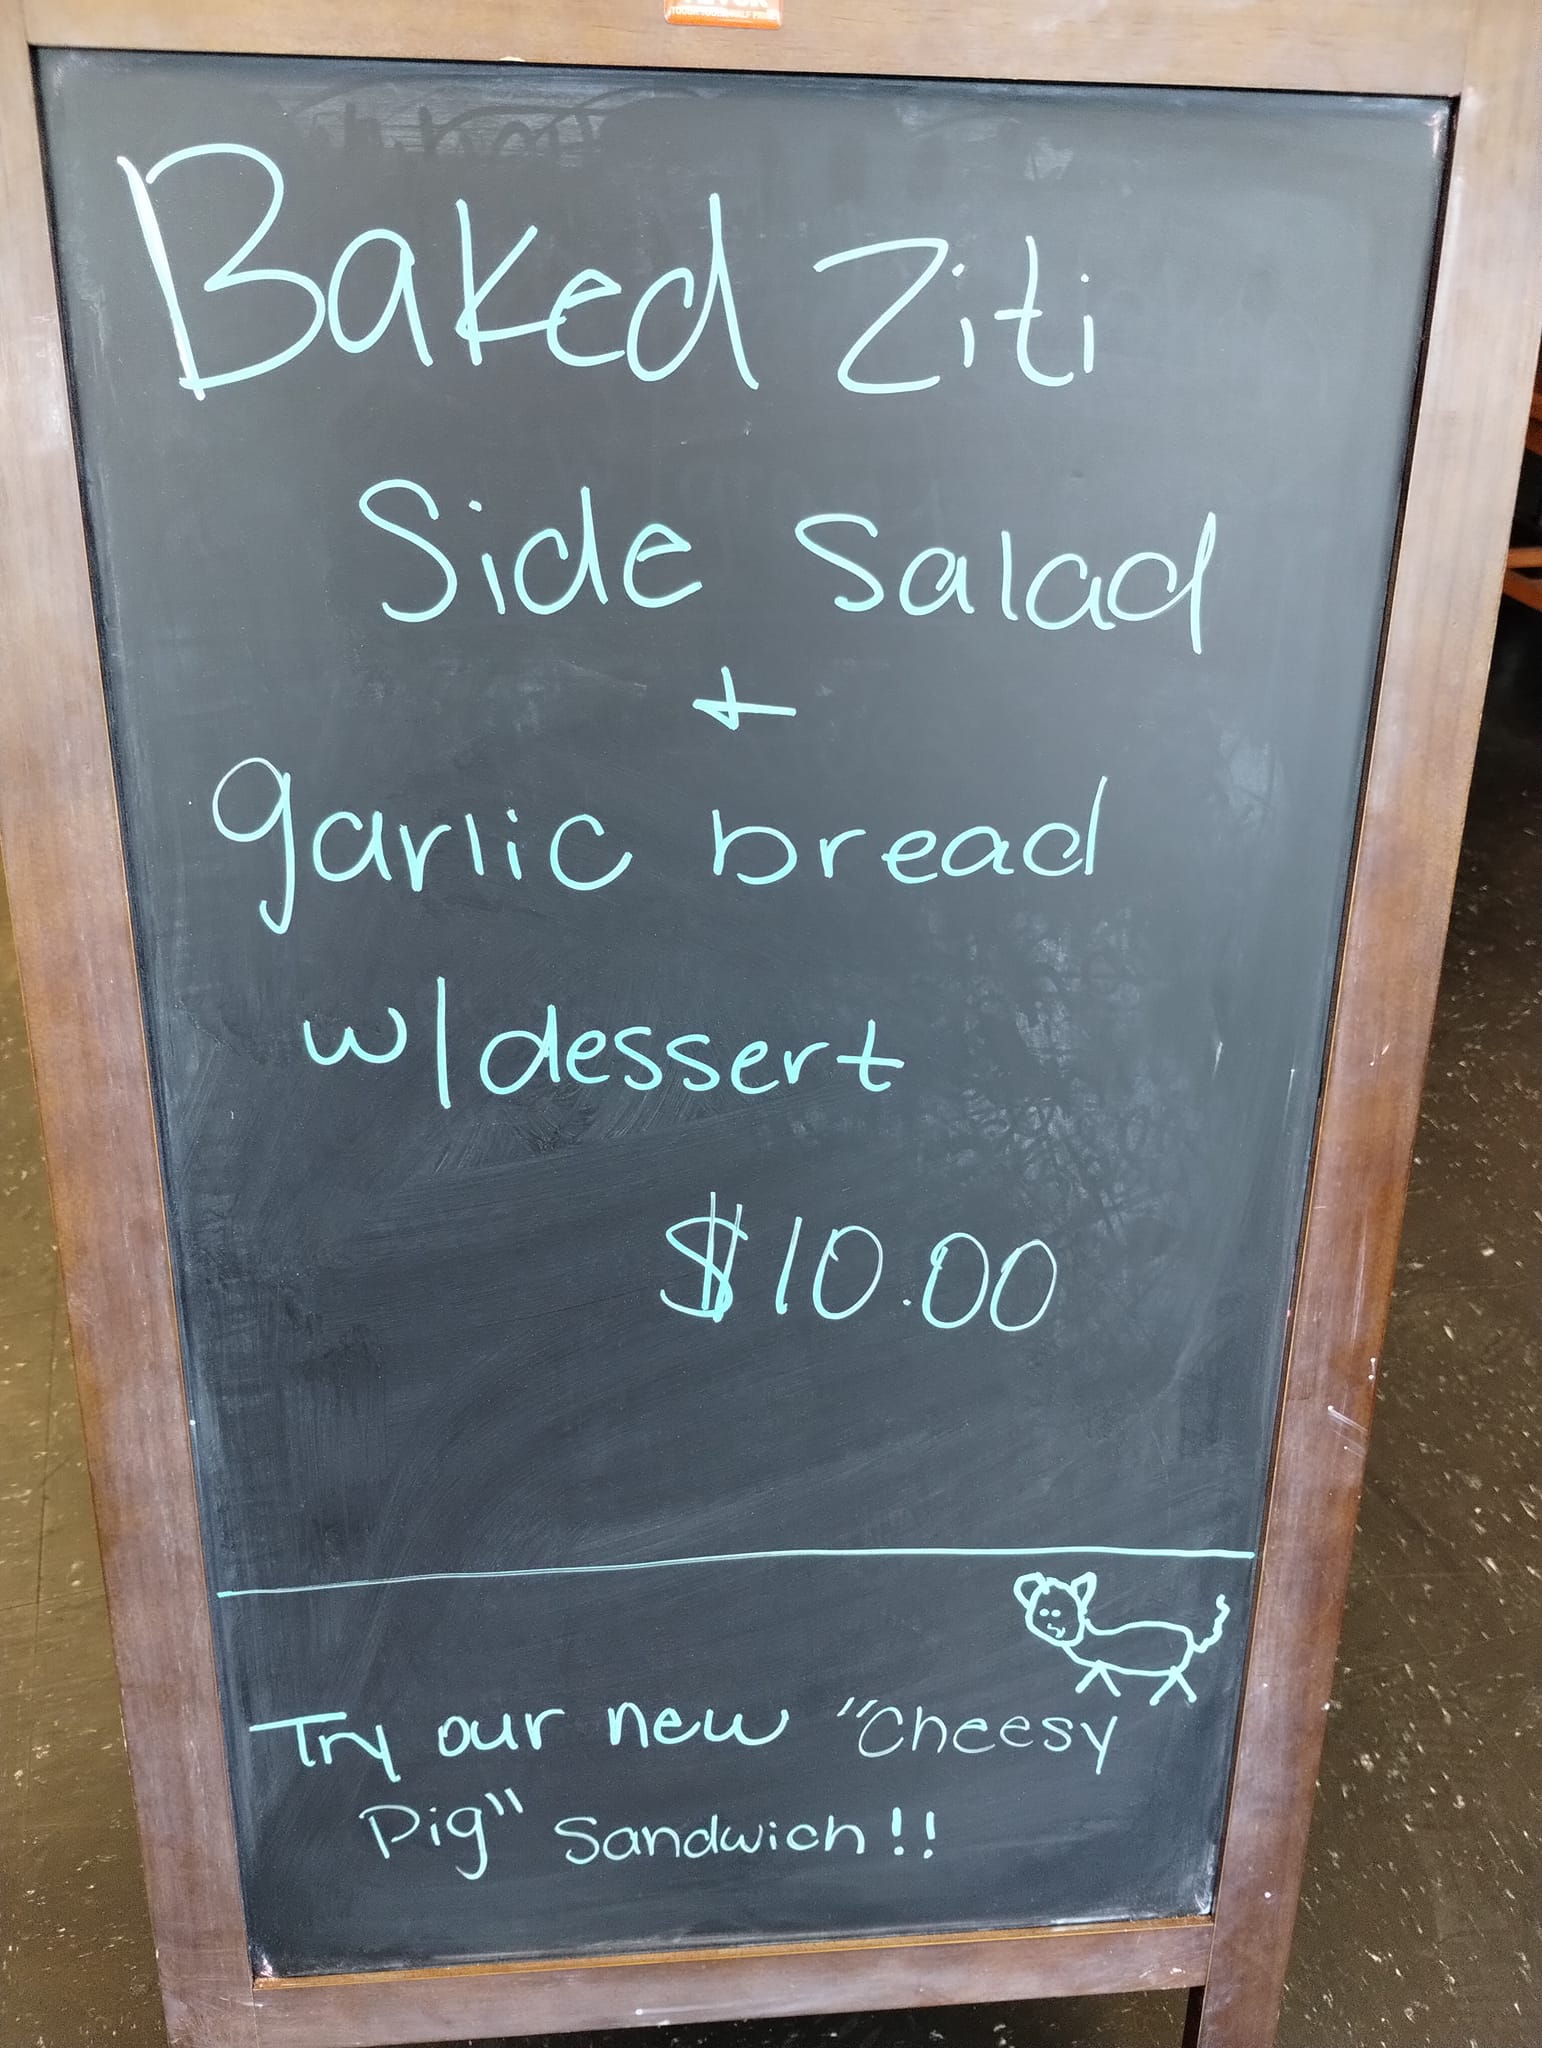 Baked Ziti
Side Salad
+
garlic bread
w/dessert
$10.00
Try our new "Cheesy
Pig" Sandwich!!